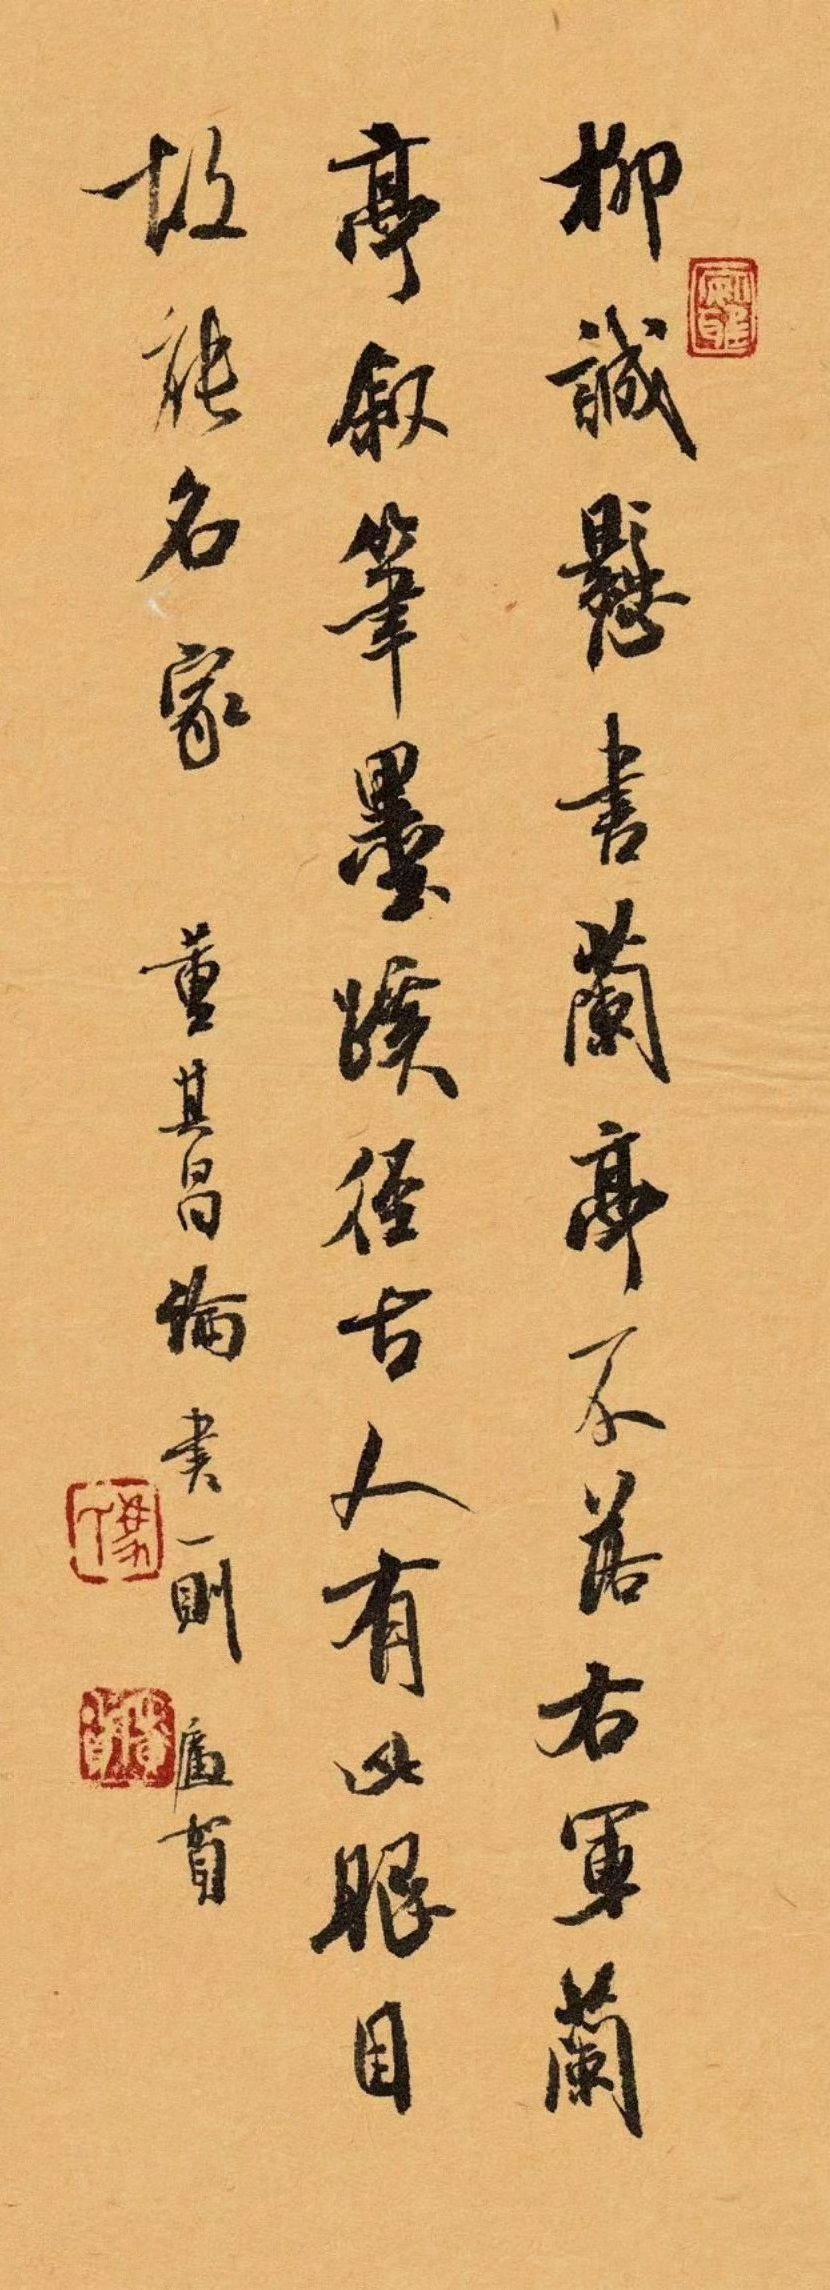 柳誠懸書蘭亭不落右軍蘭
亭敘筆墨蹊徑古人有此眼目
故能名家 董其昌論書一則